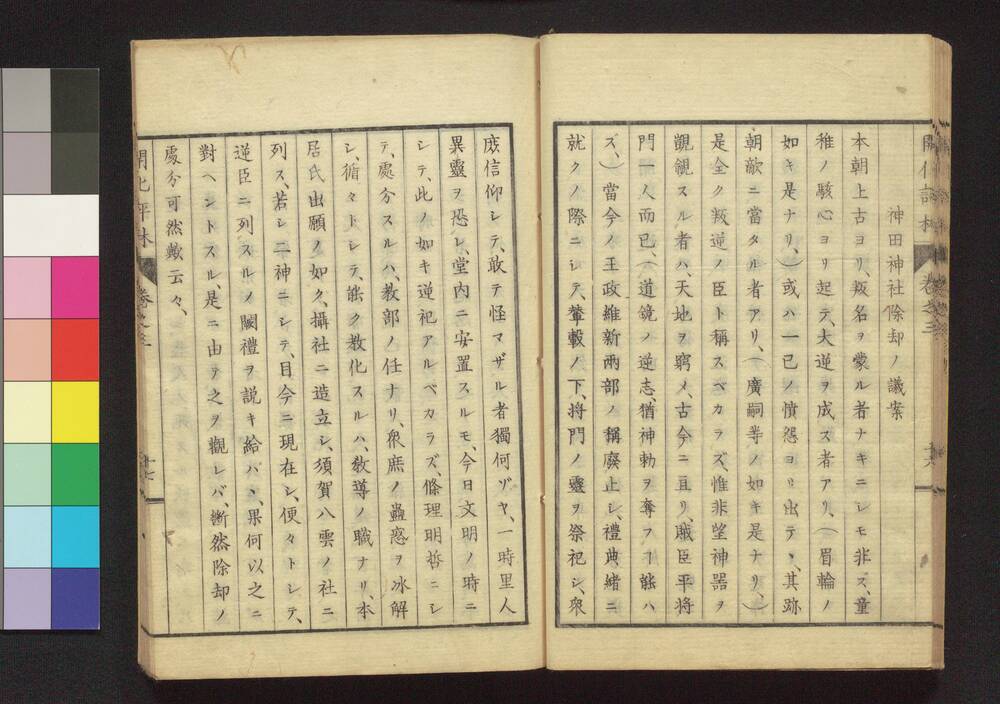 神田神社除却ノ議案
本朝上古ヨリ、叛名ヲ蒙ル者ナキニシモ非ス、童
稚ノ駭心ヨリ起テ、大逆ヲ成ス者アリ、(眉輪ノ
如キ是ナリ、)或ハ一已ノ憤怨ヨリ出テ、其跡
朝敵ニ當タル者アリ、(廣嗣等ノ如キ是ナリ、)
是全ク叛逆ノ臣ト稱スベカラズ、惟非望神器ヲ
覬覦スル者ハ、天地ヲ窮メ、古今ニ亘リ、賊臣平將
門一人而已、(道鏡ノ逆志、猶神勅ヲ奪フヿ能ハ
ズ、)當今ノ王政維新兩部ノ稱廢止シ、禮典緒ニ
就クノ際ニシテ、輦轂ノ下、將門ノ靈ヲ祭祀シ、衆
庶信仰シテ、敢テ怪マザル者獨何ゾヤ、一時里人
異靈ヲ恐レ、堂内ニ安置スルモ、今日文明ノ時ニ
シテ、此ノ如キ逆祀アルベカラズ、條理明晢ニシ
テ、處分スルハ、教部ノ任ナリ、衆庶ノ蠱惑ヲ冰解
シ、循々トシテ、能ク教化スルハ、教導ノ職ナリ、本
居氏出願ノ如ク、攝社ニ造立シ、須賀八雲ノ社ニ
列ス、若シ二神ニシテ、目今ニ現在シ、便々トシテ、
逆臣ニ列スルノ闕禮ヲ説キ給バヽ、果何以之ニ
對ヘントスル、是ニ由テ之ヲ觀レバ、斷然除却ノ
處分可然歟云々、
開化評林
卷之三
十七